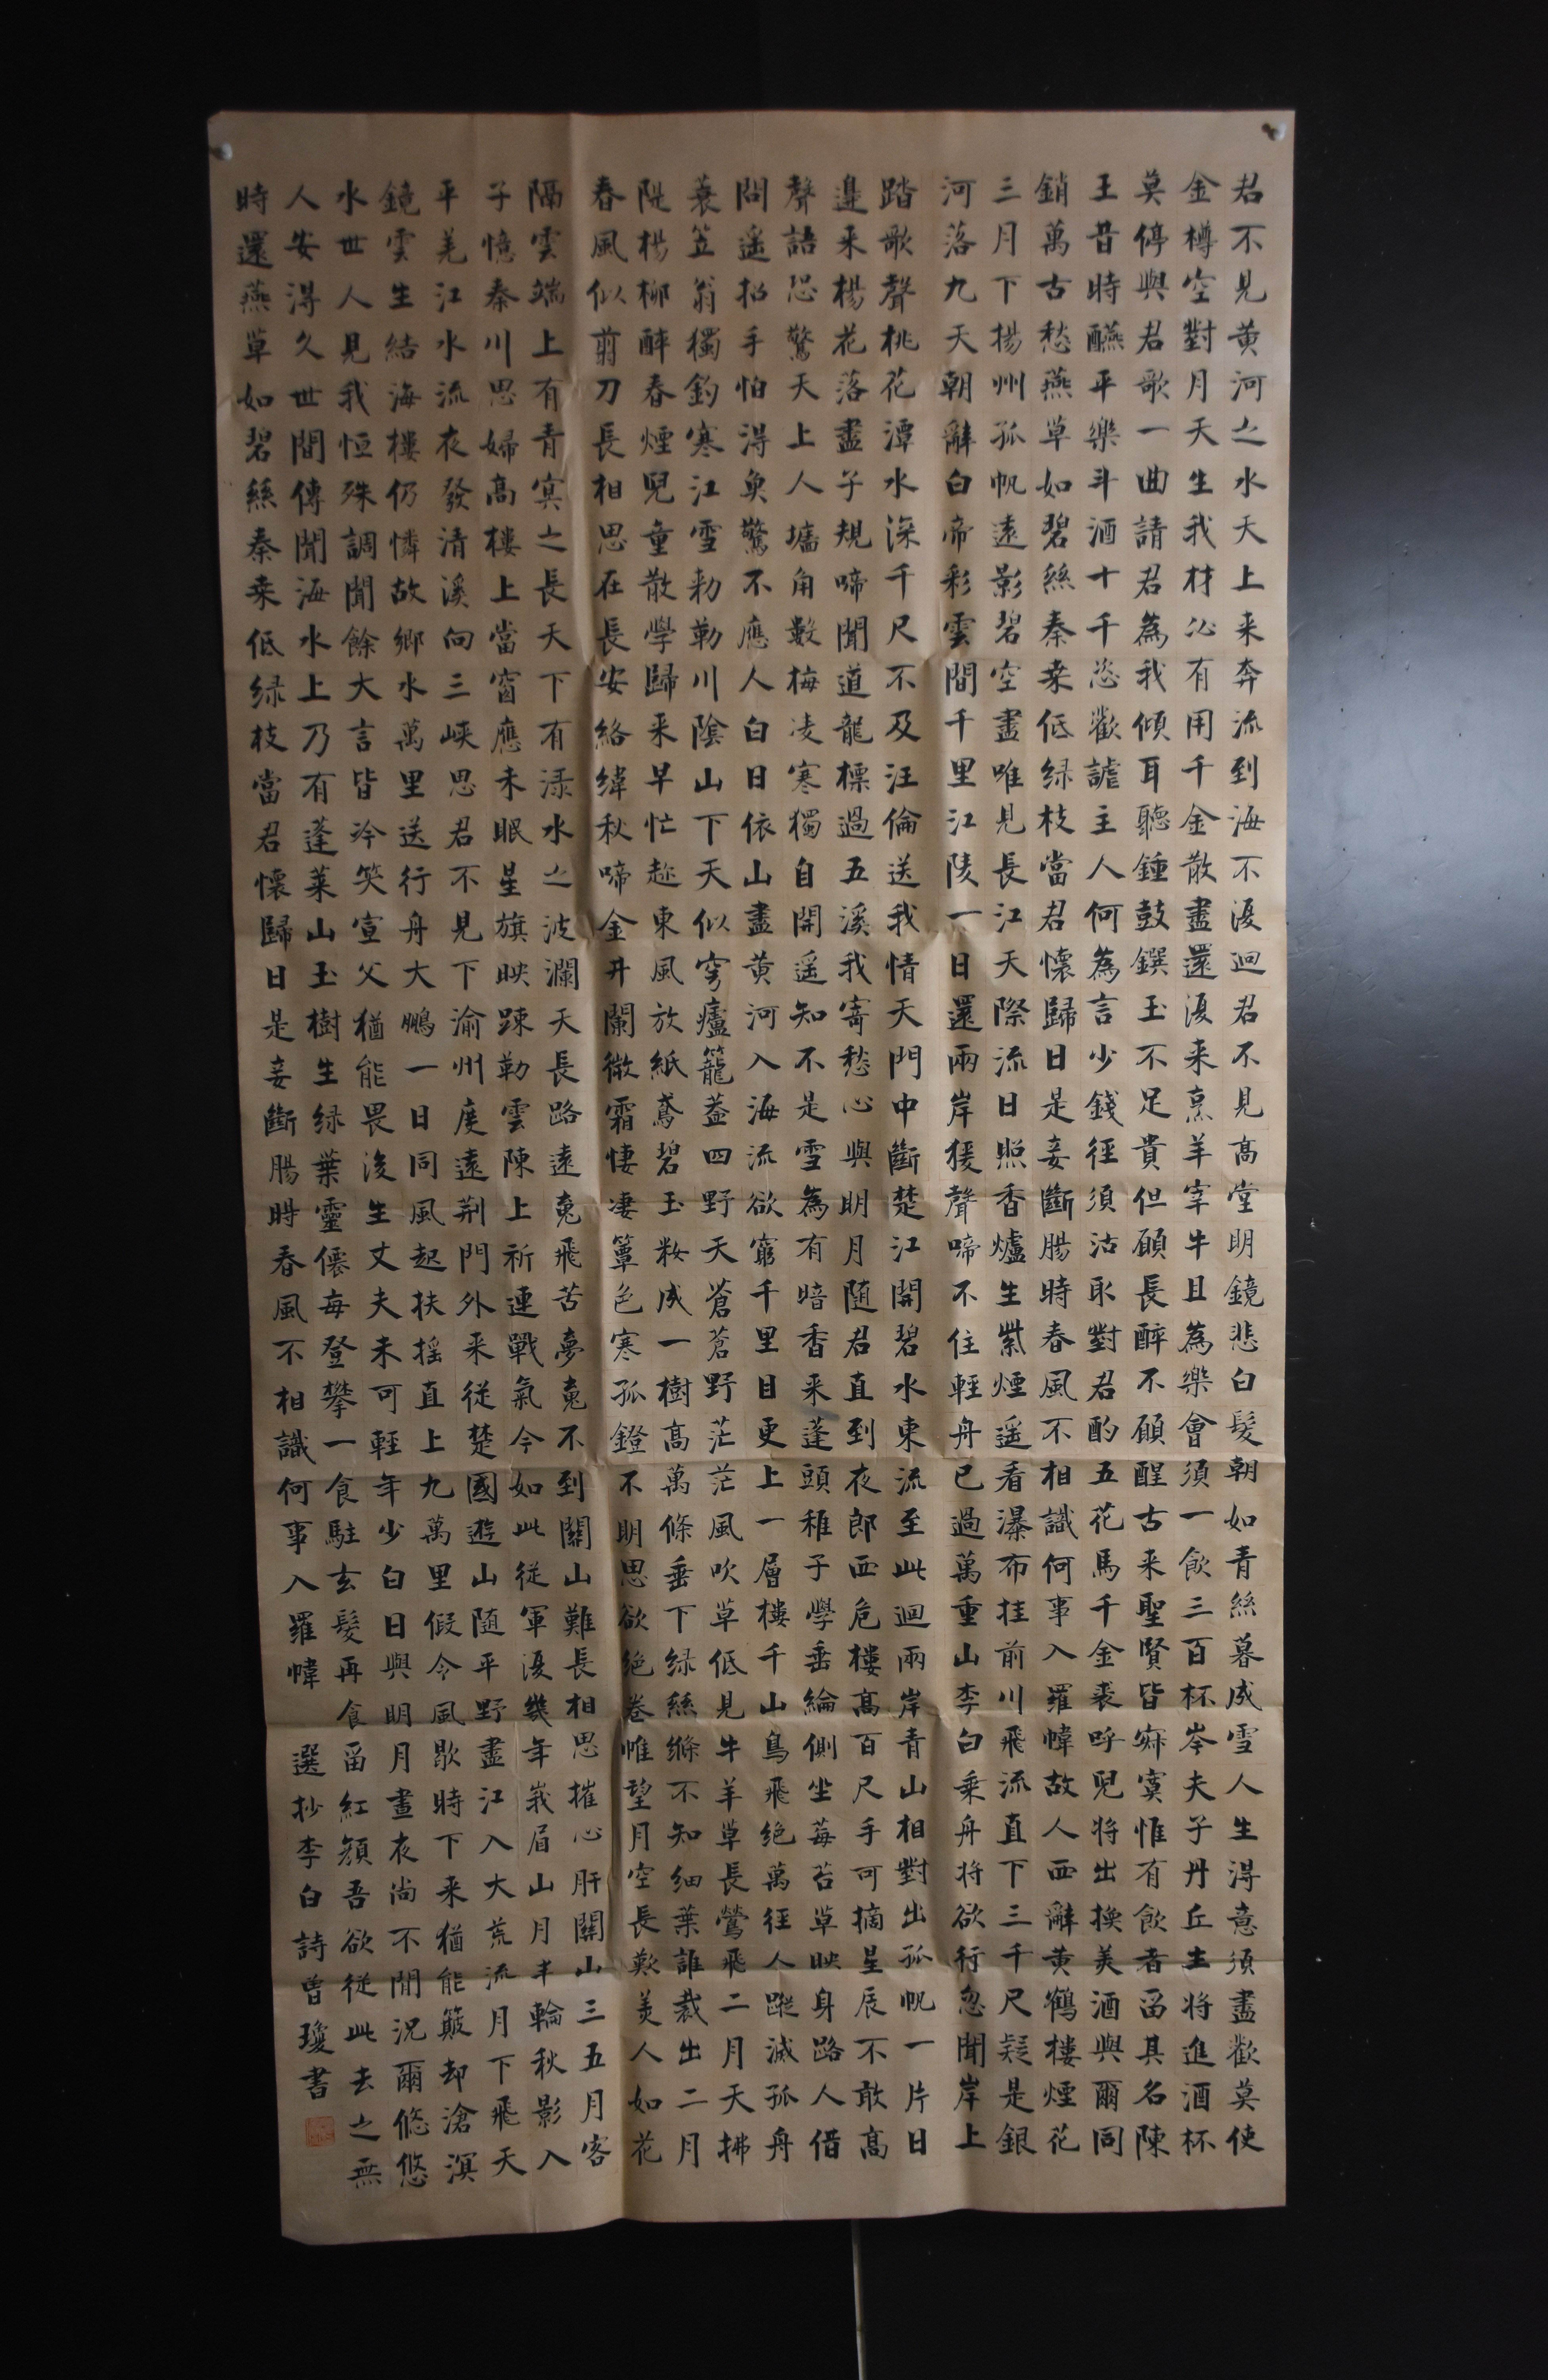 君不見黄河之水天上来奔流到海不復迴君不見高堂明鏡悲白髮朝如青絲暮成雪人生得意須盡歡莫使
金樽空對月天生我材必有用千金散盡還復来烹羊宰牛且為樂會須一飲三百杯岑夫子丹丘生将進酒杯
莫停與君歌一曲請君為我傾耳聽鍾鼓饌玉不足貴但願長醉不願醒古来聖賢皆寂寞惟有飲者留其名陳
王昔時醼平樂斗酒十千恣歡謔主人何為言少錢徑須沽取對君酌五花馬千金裘呼兒将出換美酒與爾同
銷萬古愁燕草如碧絲秦桒低緑枝當君懷歸日是妾斷腸時春風不相識何事入羅幃故人西辭黄鶴樓煙花
三月下揚州孤帆遠影碧空盡唯見長江天際流日照香爐生紫煙遥看瀑布挂前川飛流直下三千尺疑是銀
河落九天朝辭白帝彩雲間千里江陵一日還兩岸猨聲啼不住輕舟已過萬重山李白乗舟将欲行忽聞岸上
踏歌聲桃花潭水深千尺不及汪倫送我情天門中斷楚江開碧水東流至此迴兩岸青山相對出孤帆一片日
邊来楊花落盡子規啼聞道龍標過五溪我寄愁心與明月随君直到夜郎西危樓高百尺手可摘星辰不敢高
聲語恐驚天上人墻角數梅凌寒獨自開遥知不是雪為有暗香来蓬頭稚子學垂綸側坐莓苔草映身路人借
問遥招手怕得魚驚不應人白日依山盡黄河入海流欲窮千里目更上一層樓千山鳥飛絶萬徑人蹤滅孤舟
蓑笠翁獨釣寒江雪勑勒川陰山下天似穹廬籠蓋四野天蒼蒼野茫茫風吹草低見牛羊草長鶯飛二月天拂
隄楊柳醉春煙兒童散學歸来早忙趂東風放紙鳶碧玉粧成一樹高萬條垂下緑絲絛不知細葉誰裁出二月
春風似剪刀長相思在長安絡緯秋啼金井闌微霜悽凄簟色寒孤鐙不明思欲絶卷帷望月空長歎美人如花
隔雲端上有青冥之長天下有渌水之波瀾天長路遠䰟飛苦夢䰟不到關山難長相思摧心肝關山三五月客
子憶秦川思婦高樓上當窗應未眠星旗映踈勒雲陳上祈連戰氣今如此從軍復幾年峩眉山月半輪秋影入
平羌江水流夜發清溪向三峽思君不見下渝州度遠荆門外来從楚國遊山随平野盡江入大荒流月下飛天
鏡雲生結海樓仍憐故鄉水萬里送行舟大鵬一日同風起扶搖直上九萬里假令風歇時下来猶能簸却滄溟
水世人見我恒殊調聞餘大言皆冷笑宣父猶能畏後生丈夫未可輕年少白日與明月晝夜尚不閒況爾悠悠
人安得久世間傳聞海水上乃有蓬萊山玉樹生緑葉靈僊每登攀一食駐玄髮再食留紅顔吾欲從此去之無
時還燕草如碧絲秦桒低緑枝當君懷歸日是妾斷腸時春風不相識何事入羅幃 選抄李白詩曽瓊書